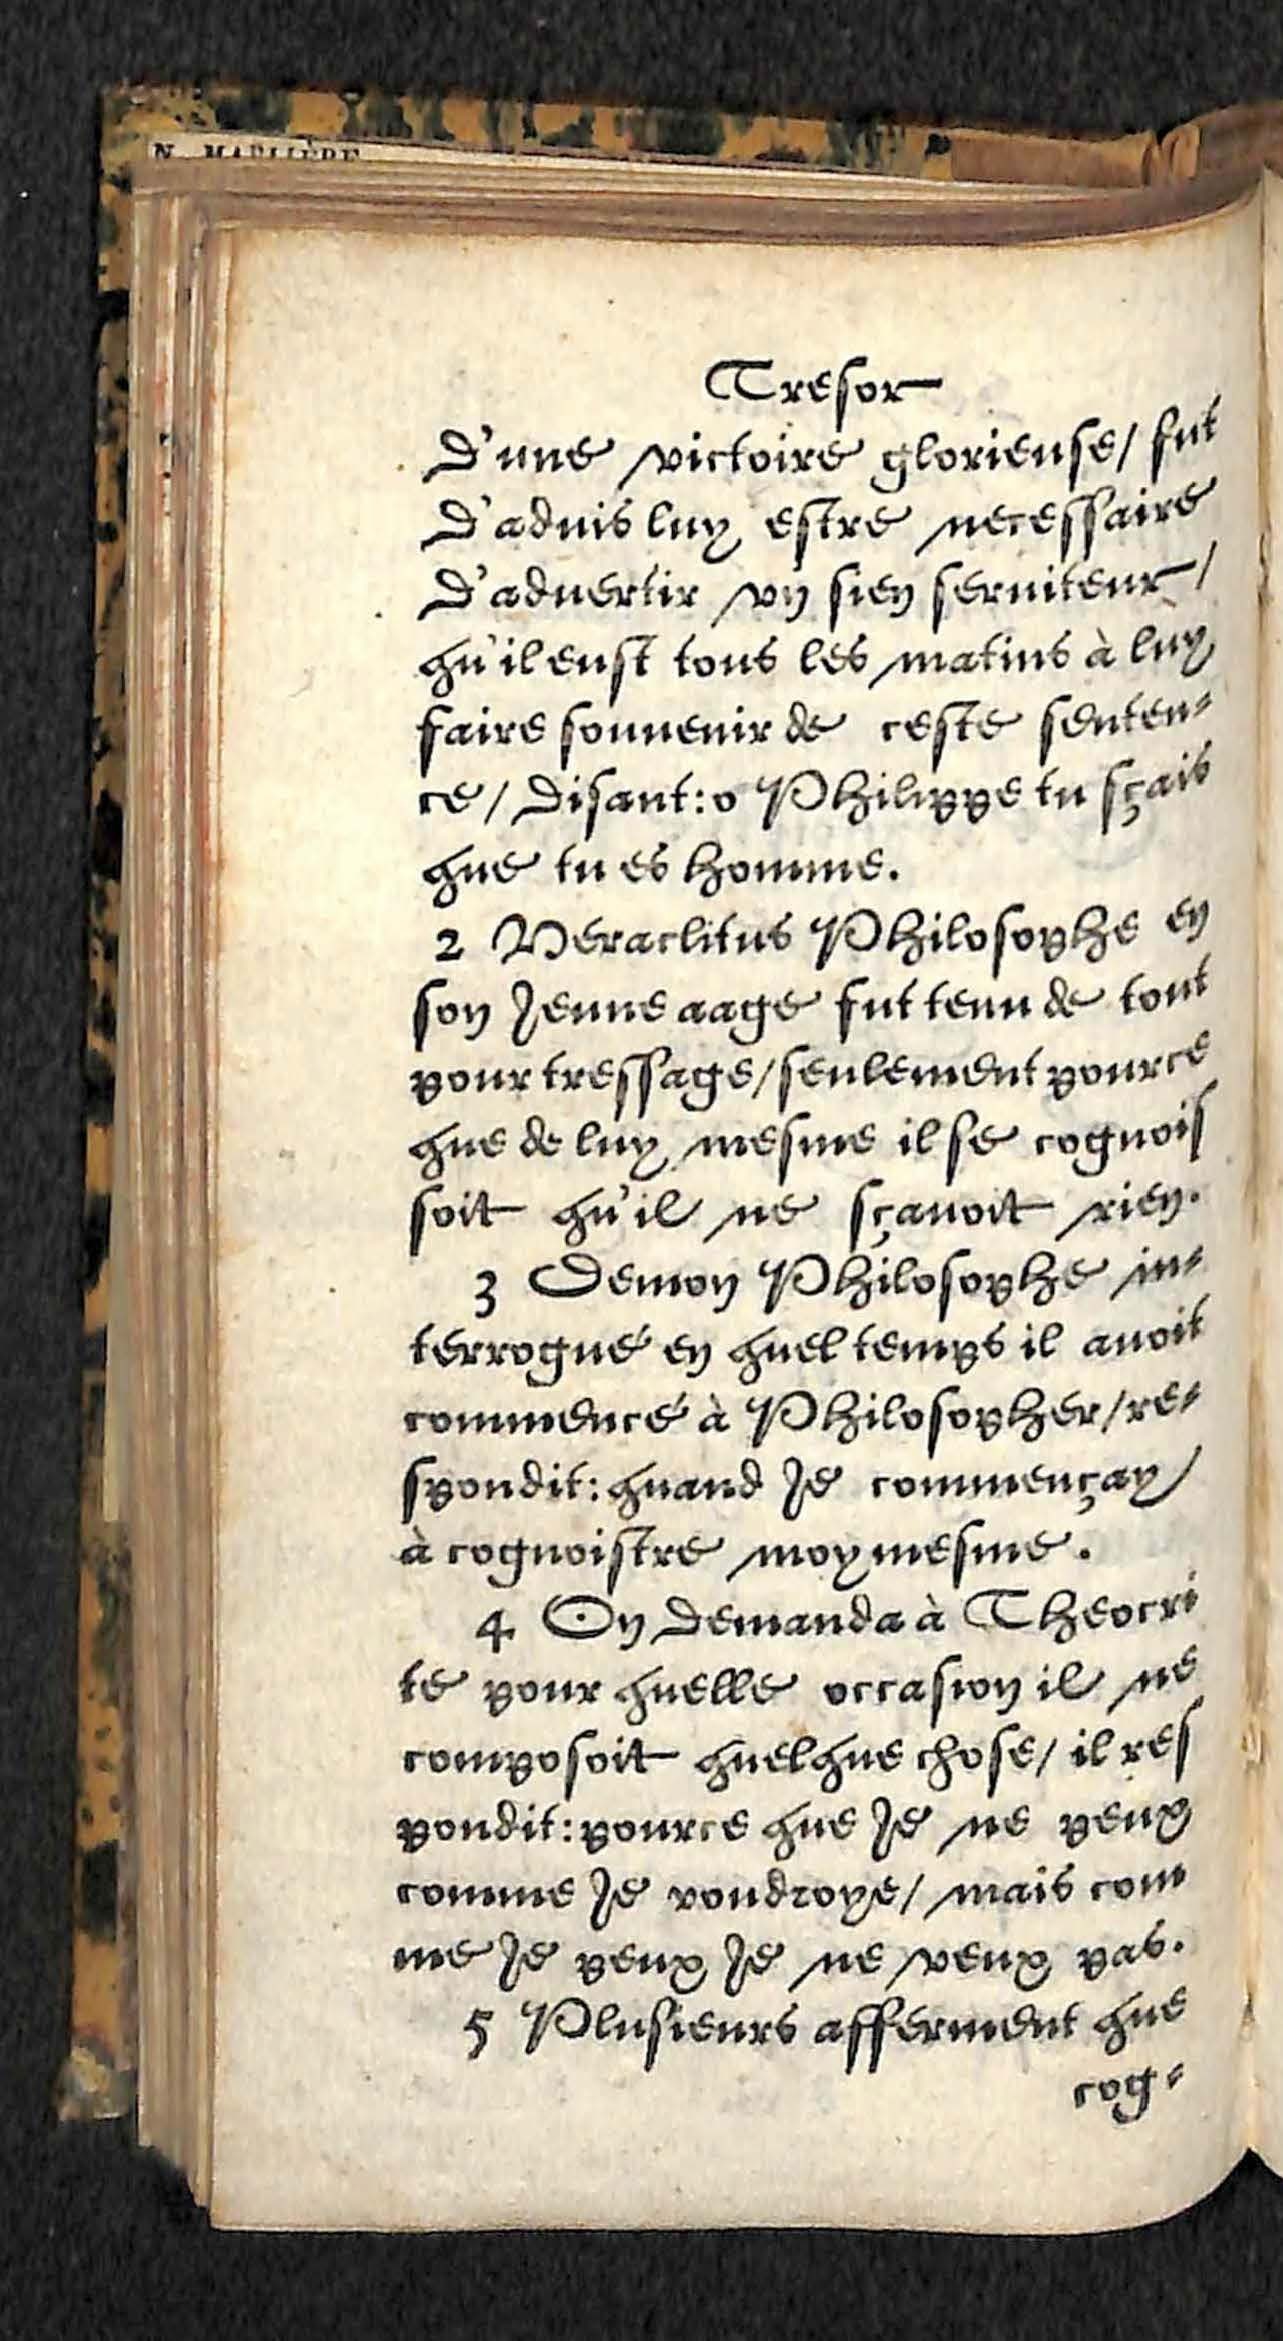 N. MARLIÈRE
Tresor
D'une victoire glorieuse/ fut
D'aduis luy estre necessaire
D'aduertir vn sien seruiteur/
qu'il eust tous les matins à luy
faire souuenir de ceste senten-
ce/ disant: o Philippe tu sçais
que tu es homme.
2 Heraclitus Philosophe en
son jeune aage fut tenu de tout
pour tressage/ seulement pource
que de luy mesme il se cognois
soit qu'il ne sçauoit rien.
3 Demon Philosophe in-
terrogué en quel temps il auoit
commencé à Philosopher/ re-
spondit: quand je commençay
à cognoistre moymesme.
4 On demanda à Theocri
te pour quelle occasion il ne
composoit quelque chose/ il res
pondit: pource que je ne peux
comme je voudroye/ mais com
me je peux je ne veux pas.
5 Plusieurs afferment que
cog-